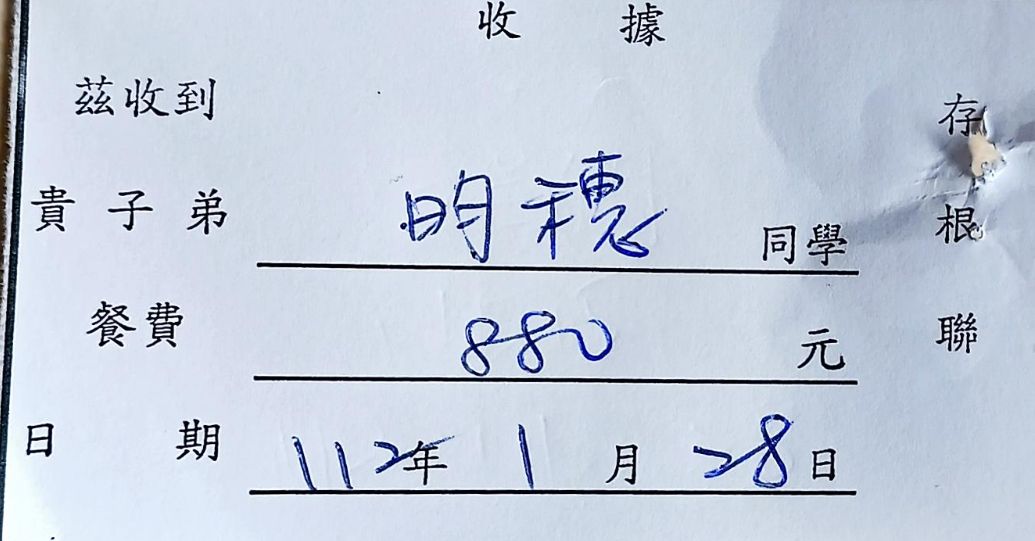 收 據
茲收到
貴子弟 昀穗 同學
餐費 880 元
日期 112年1月28日
存根聯